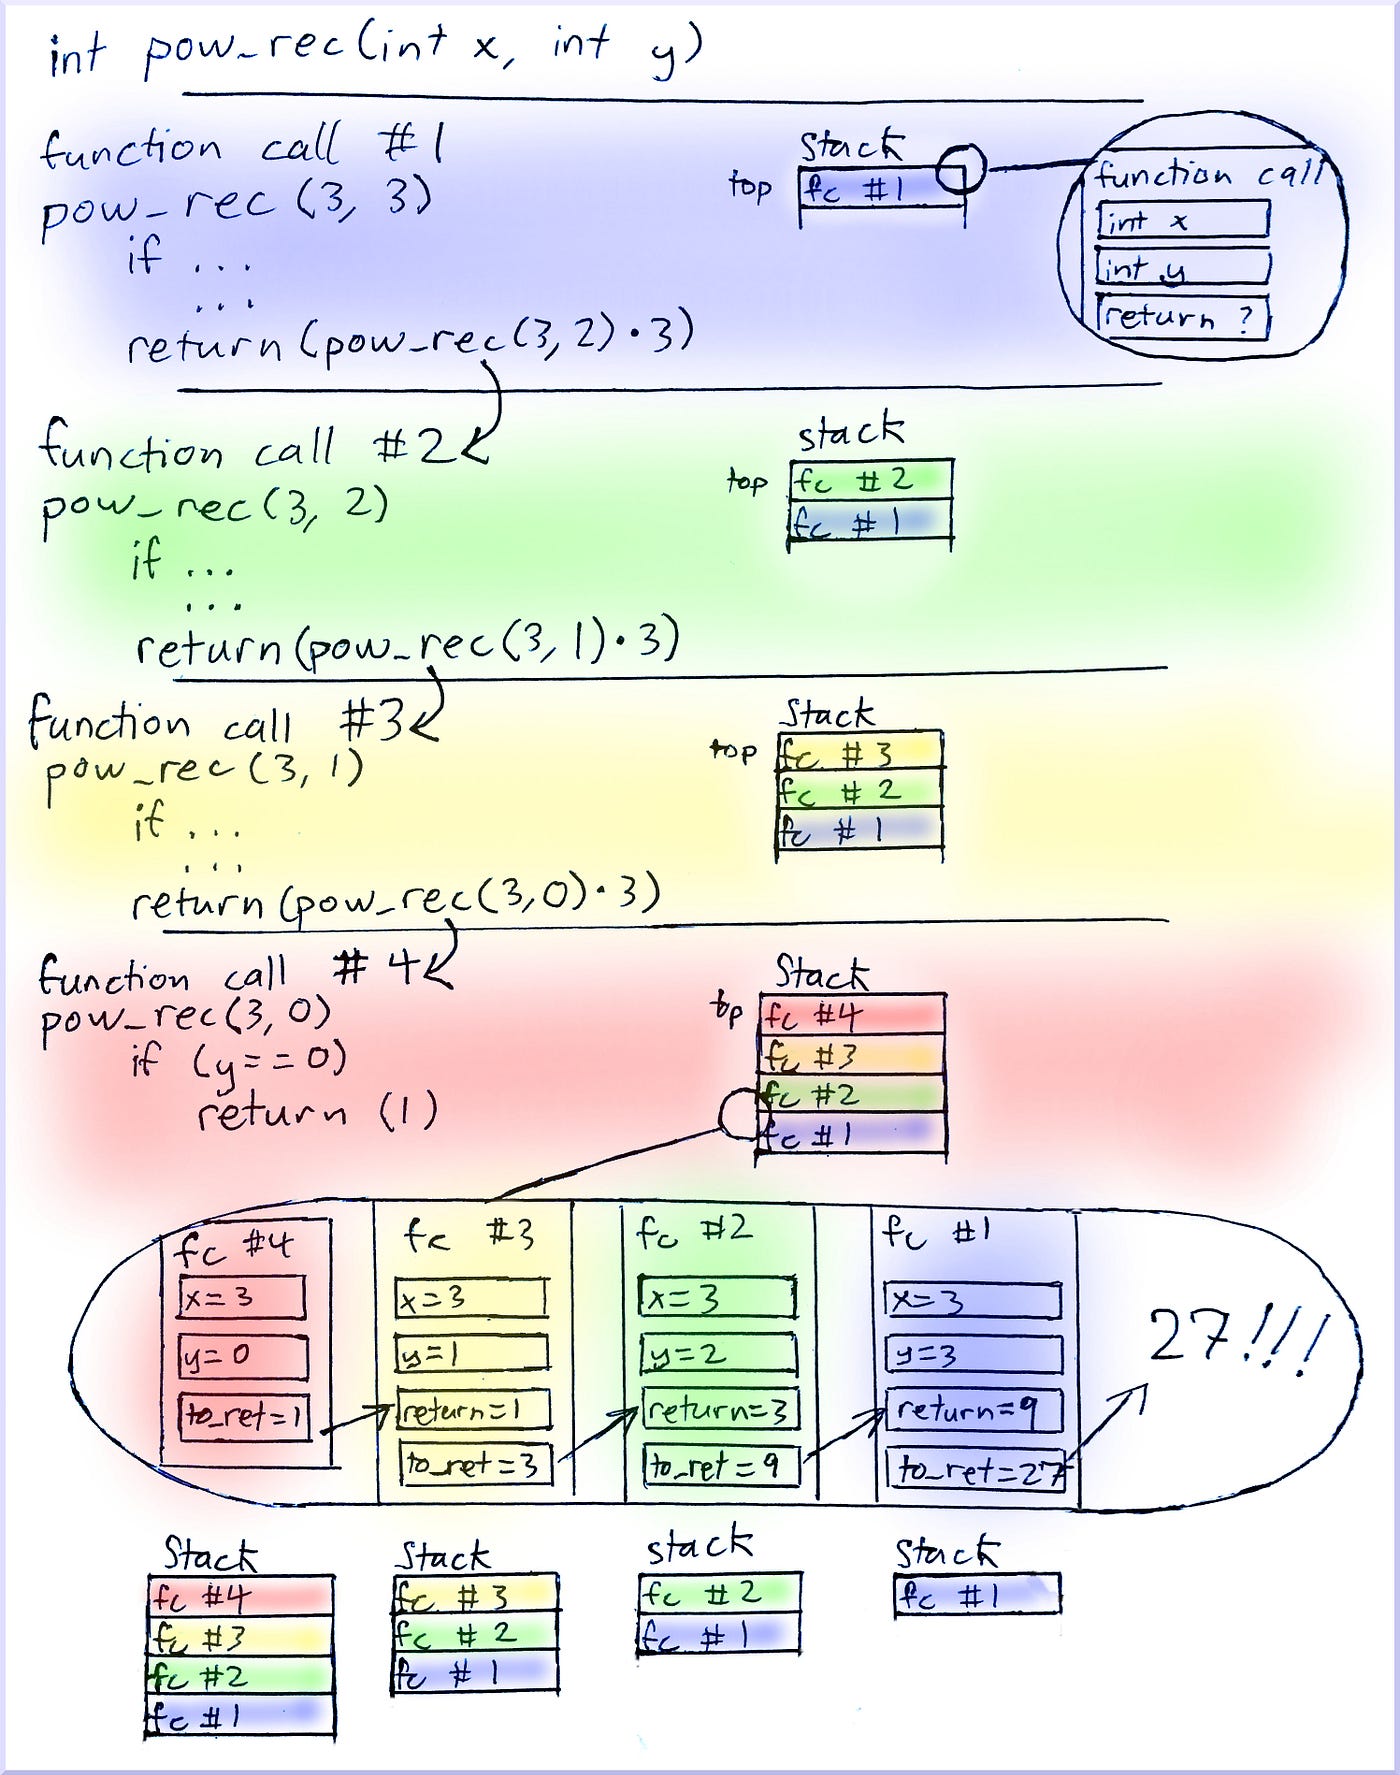 int pow_rec(int x, int y)
function call #1
pow_rec (3, 3)
if ...
...
return (pow_rec(3,2)·3)
Stack
top
fc #1
function call
int x
int y
return ?
function call #2
pow_rec(3, 2)
if ...
...
return (pow_rec(3,1)·3)
stack
top
fc #2
fc #1
function call #3
pow_rec(3, 1)
if ...
...
return (pow_rec(3,0)·3)
Stack
top
fc #3
fc #2
fc #1
function call #4
pow_rec(3,0)
if (y==0)
return (1)
Stack
top
fc #4
fc #3
fc #2
fc #1
fc #4
x=3
y=0
to_ret=1
fc #3
x=3
y=1
return=1
to_ret=3
fc #2
x=3
y=2
return=3
to_ret=9
fc #1
x=3
y=3
return=9
to_ret=27
27!!!
Stack
fc #4
fc #3
fc #2
fc #1
Stack
fc #3
fc #2
fc #1
stack
fc #2
fc #1
Stack
fc #1